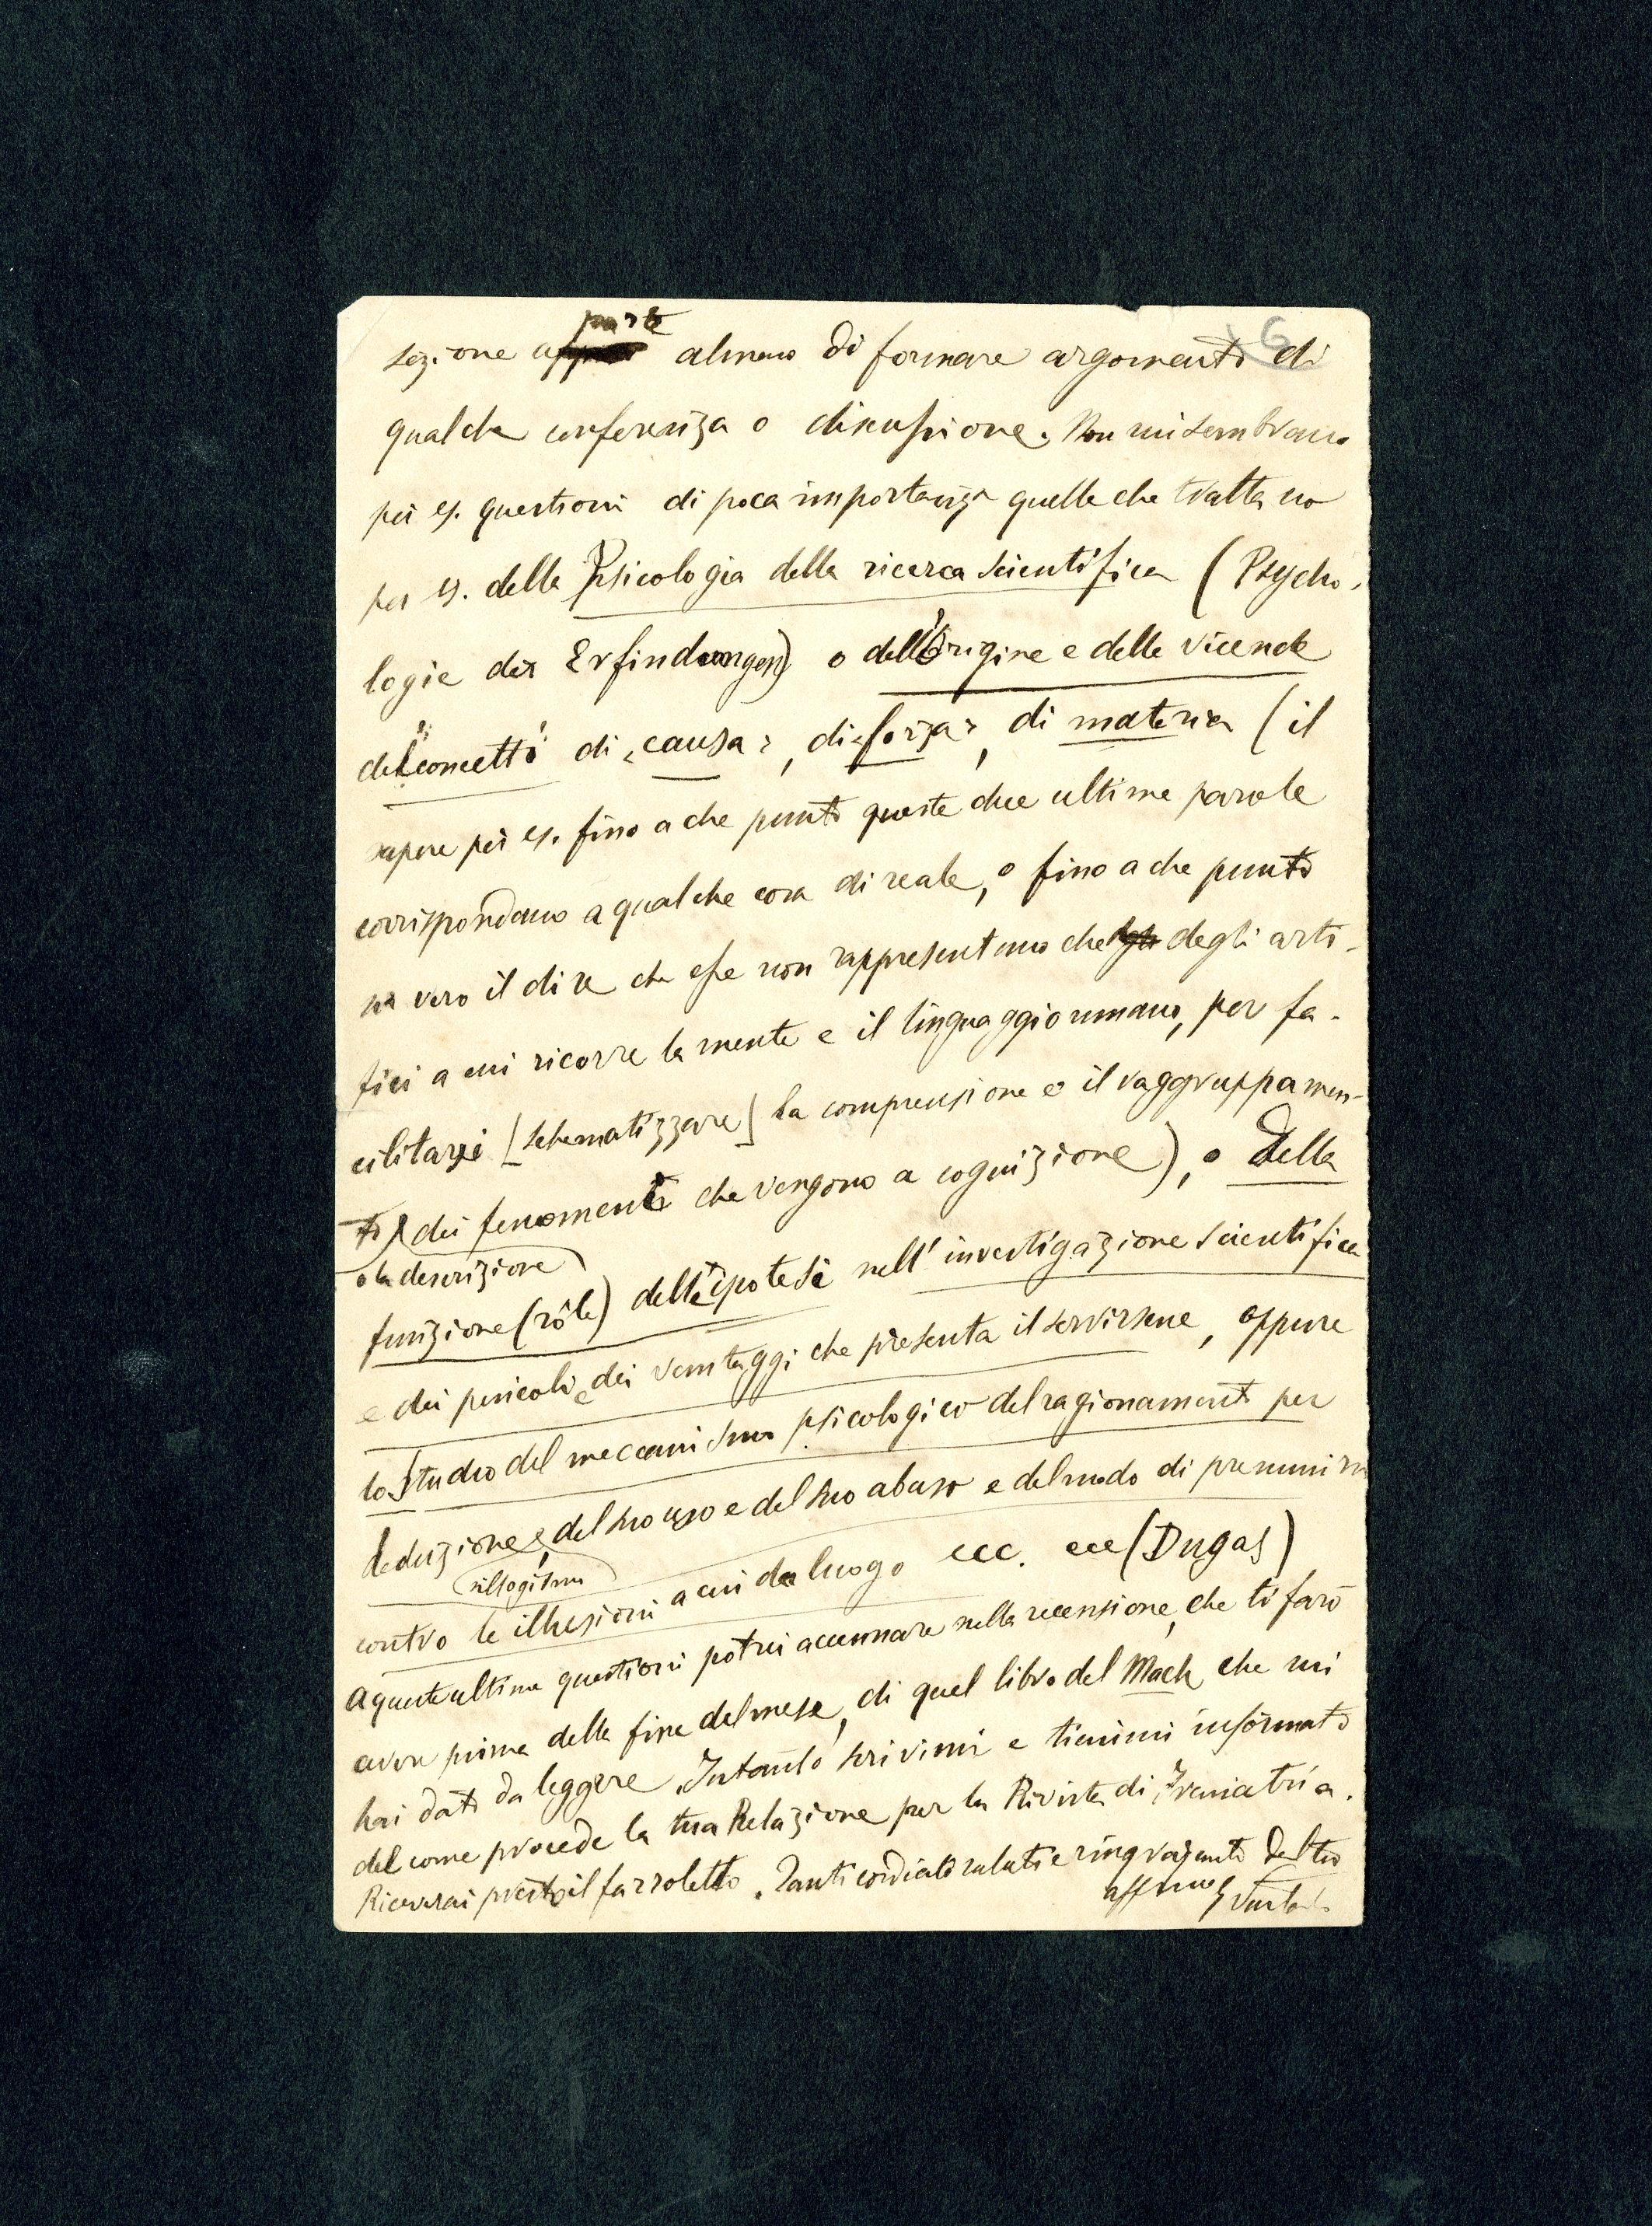 6
sezione a parte almeno di formare argomento di
qualche conferenza o discussione. Non mi sembrano
per es. questioni di poca importanza quelle che trattano
per es. della Psicologia della ricerca scientifica (Psycho-
logie der Erfindungen) o dell'origine e delle vicende
dei concetti di "causa", di "forza", di materia (il
sapere per es. fino a che punto queste due ultime parole
corrispondano a qualche cosa di reale, o fino a che punto
sia vero il dire che esse non rappresentano che degli arti-
fici a cui ricorre la mente e il linguaggio umano, per fa-
cilitarsi [schematizzare] la comprensione e il raggruppamen-
to dei fenomeni che vengono a cognizione), o della
o la descrizione
funzione (rôle) delle ipotesi nell'investigazione scientifica
e dei pericoli e dei vantaggi che presenta il servirsene, oppure
lo studio del meccanismo psicologico del ragionamento per
deduzione, del suo uso e del suo abuso e del modo di premunirsi
sillogismo
contro le illusioni a cui dà luogo ecc. ecc (Dugas)
A queste ultime questioni potrei accennare nella recensione, che ti farò
avere prima della fine del mese, di quel libro del Mach che mi
hai dato da leggere. Intanto scrivimi e tienimi informato
del come procede la tua Relazione per la Rivista di Freniatria.
Riceverai presto il fazzoletto. Tanti cordiali saluti e ringraziamenti del tuo
affmo G Vailati